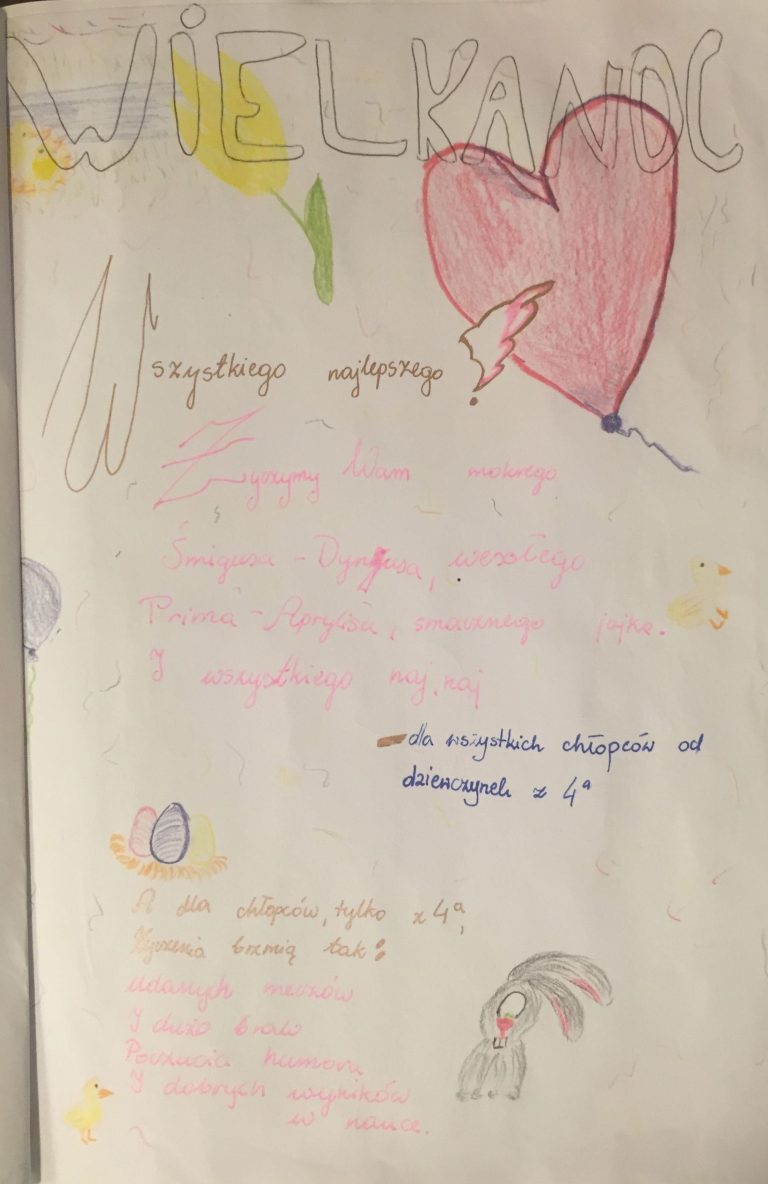 WIELKANOC
Wszystkiego najlepszego!
Zyczymy Wam mokrego
Śmigusa - Dyngusa, wesołego
Prima - Aprylisa, smacznego jajka.
I wszystkiego naj, naj
- dla wszystkich chłopców od
dziewczynek z 4a
A dla chłopców, tylko z 4a,
życzenia brzmią tak:
udanych meczów
I dużo braw
Poczucia humoru
I dobrych wyników
w nauce.